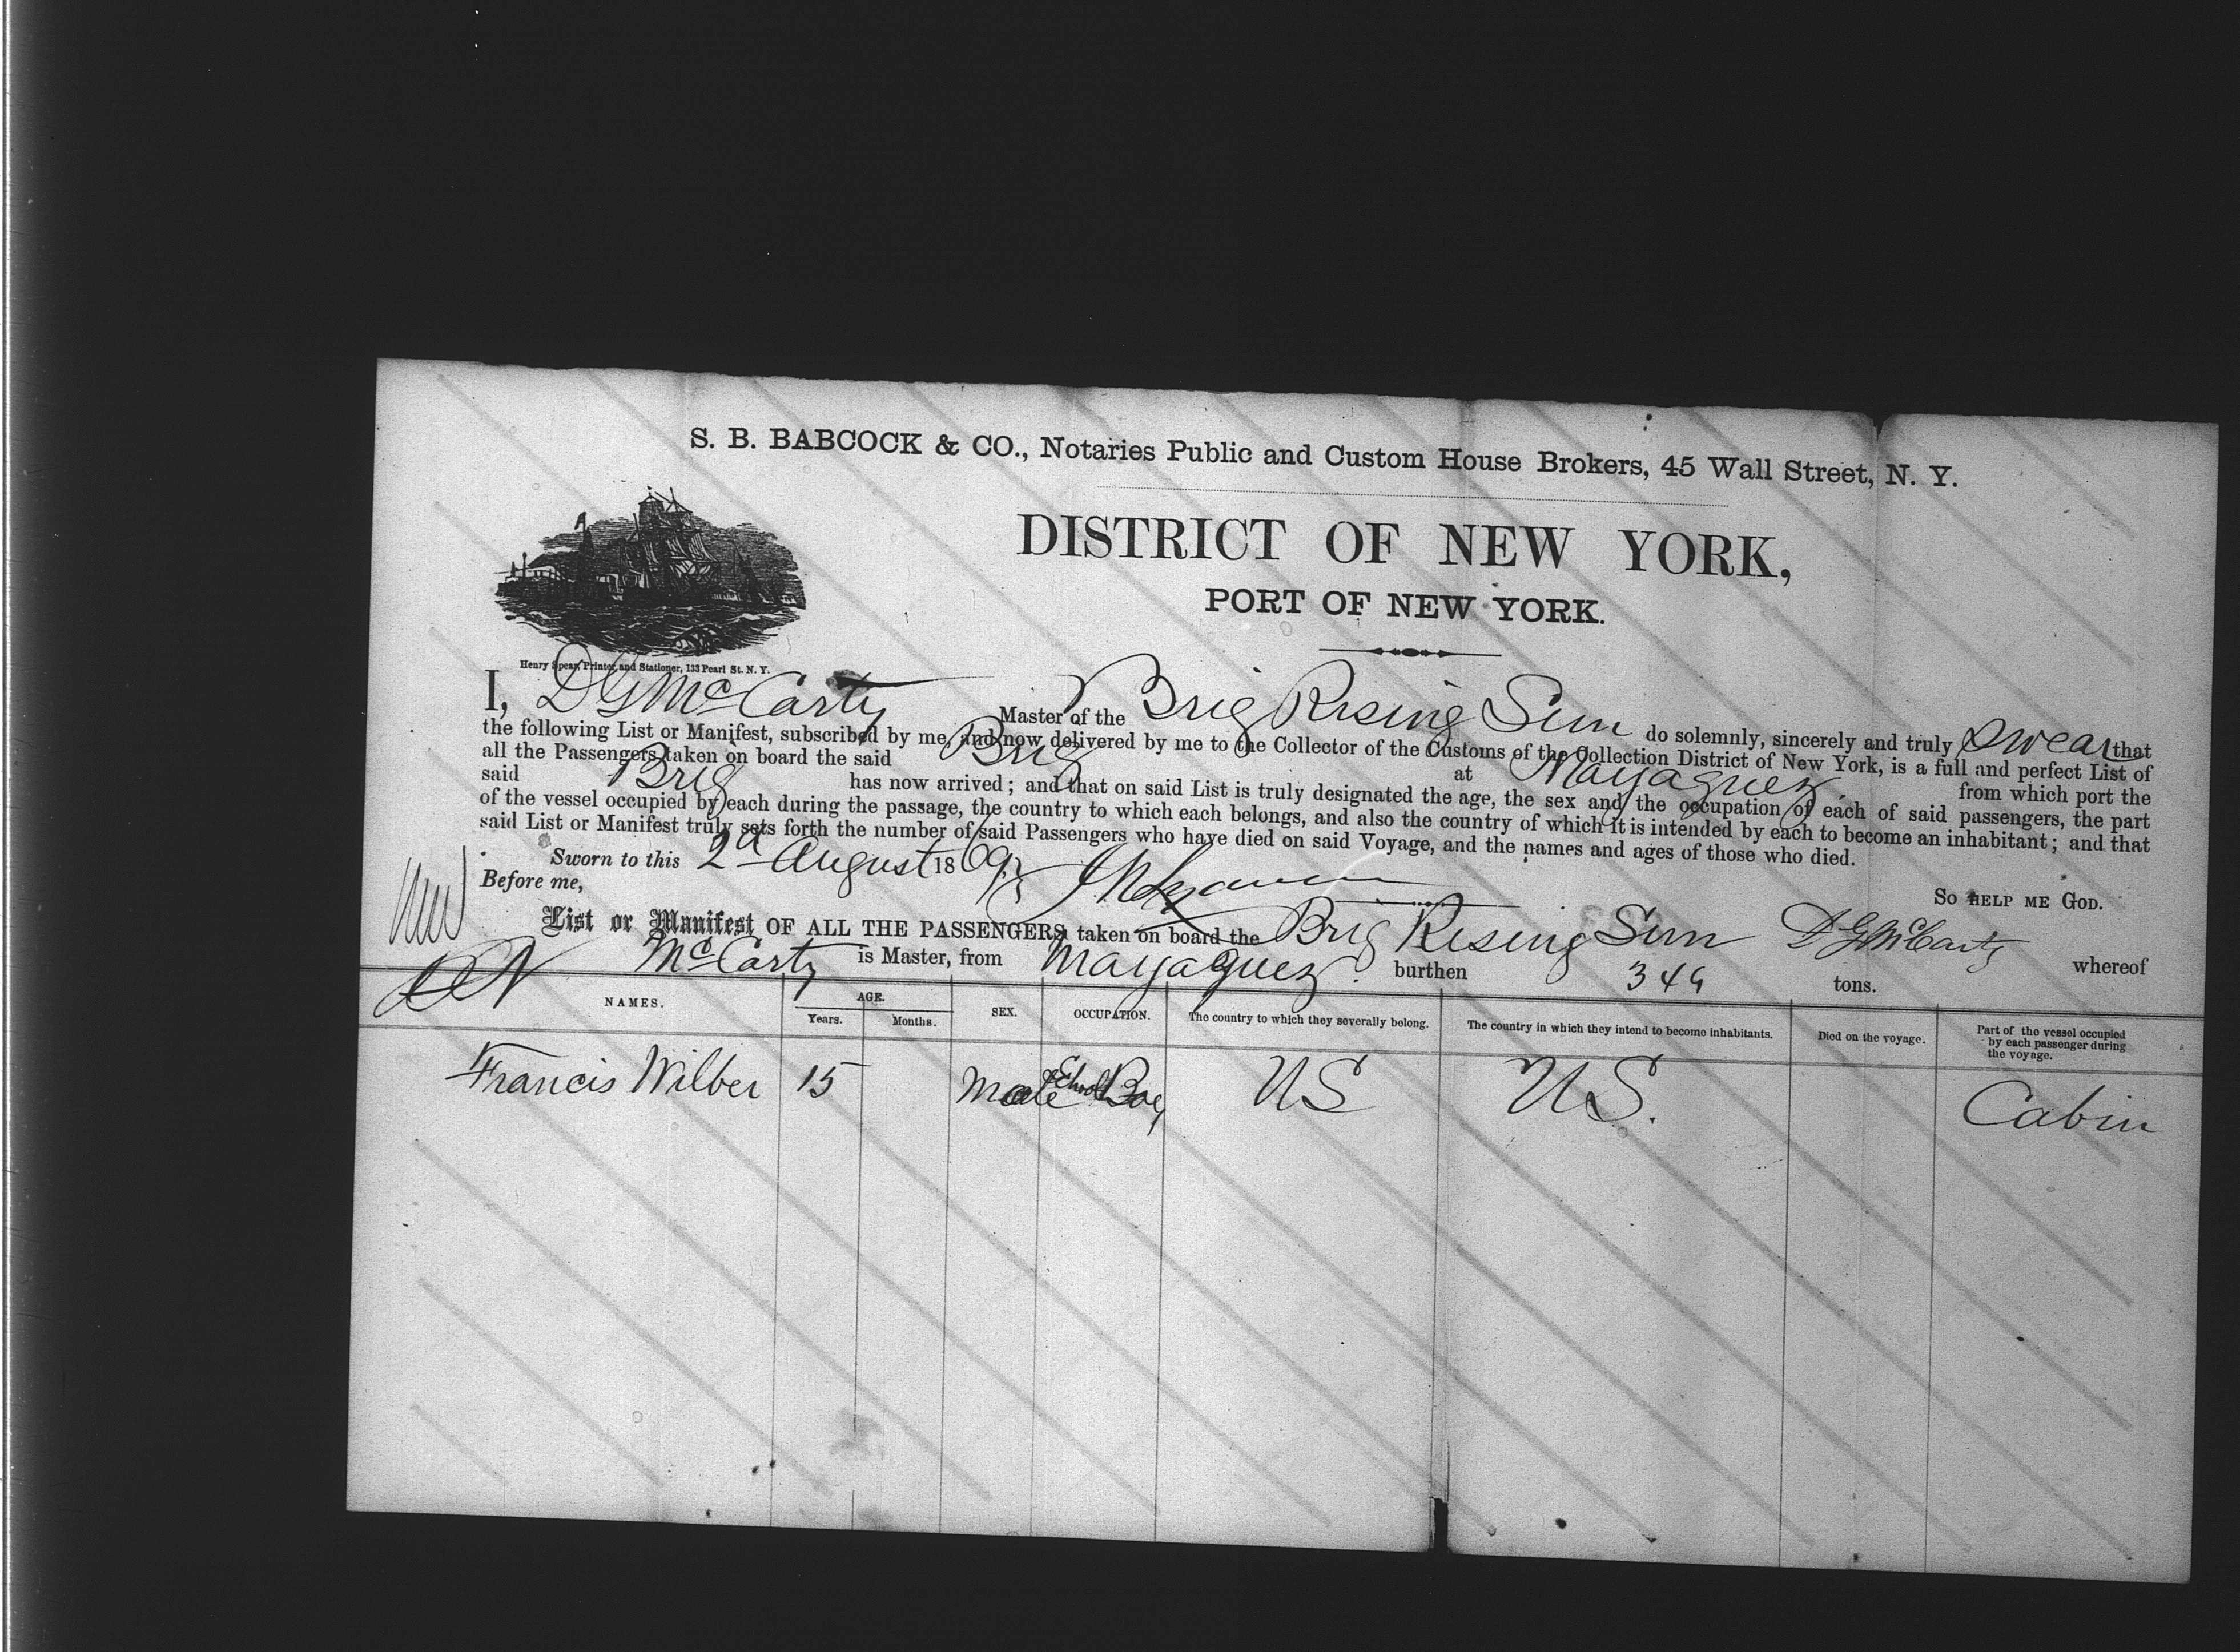 S. B. BABCOCK & CO., Notaries Public and Custom House Brokers, 45 Wall Street, N. Y.
DISTRICT OF NEW YORK,
PORT OF NEW YORK.
Henry Spear, Printer and Stationer, 133 Pearl St. N. Y.
I, D G McCarty Master of the Brig Rising Sun do solemnly, sincerely and truly swear that
the following List or Manifest, subscribed by me, and now delivered by me to the Collector of the Customs of the Collection District of New York, is a full and perfect List of
all the Passengers taken on board the said Brig at Mayaguez from which port the
said Brig has now arrived; and that on said List is truly designated the age, the sex and the occupation of each of said passengers, the part
of the vessel occupied by each during the passage, the country to which each belongs, and also the country of which it is intended by each to become an inhabitant; and that
said List or Manifest truly sets forth the number of said Passengers who have died on said Voyage, and the names and ages of those who died.
Sworn to this 2d August 1869
So HELP ME GOD.
Before me,
D G McCarty
List or Manifest OF ALL THE PASSENGERS taken on board the Brig Rising Sun whereof
McCarty is Master, from Mayaguez burthen 349 tons.
NAMES. AGE. SEX. OCCUPATION. The country to which they severally belong. The country in which they intend to become inhabitants. Died on the voyage. Part of the vessel occupied
by each passenger during
the voyage.
Years. Months.
Francis Wilber 15 Male School Boy US US. Cabin